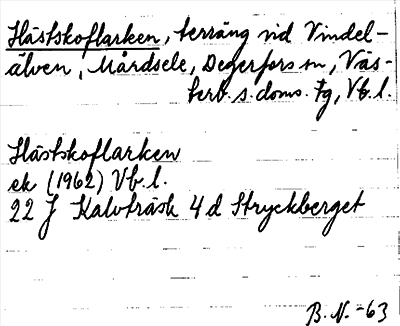 Hästskoflarken, terräng vid Vindel-
älven, Mårdsele, Degerfors sn, Väs-
terb. s. doms. fg, Vb. l.
Hästskoflarken
ek (1962) Vb. l.
22 J Kalvträsk 4 d Stryckberget
B. N. -63